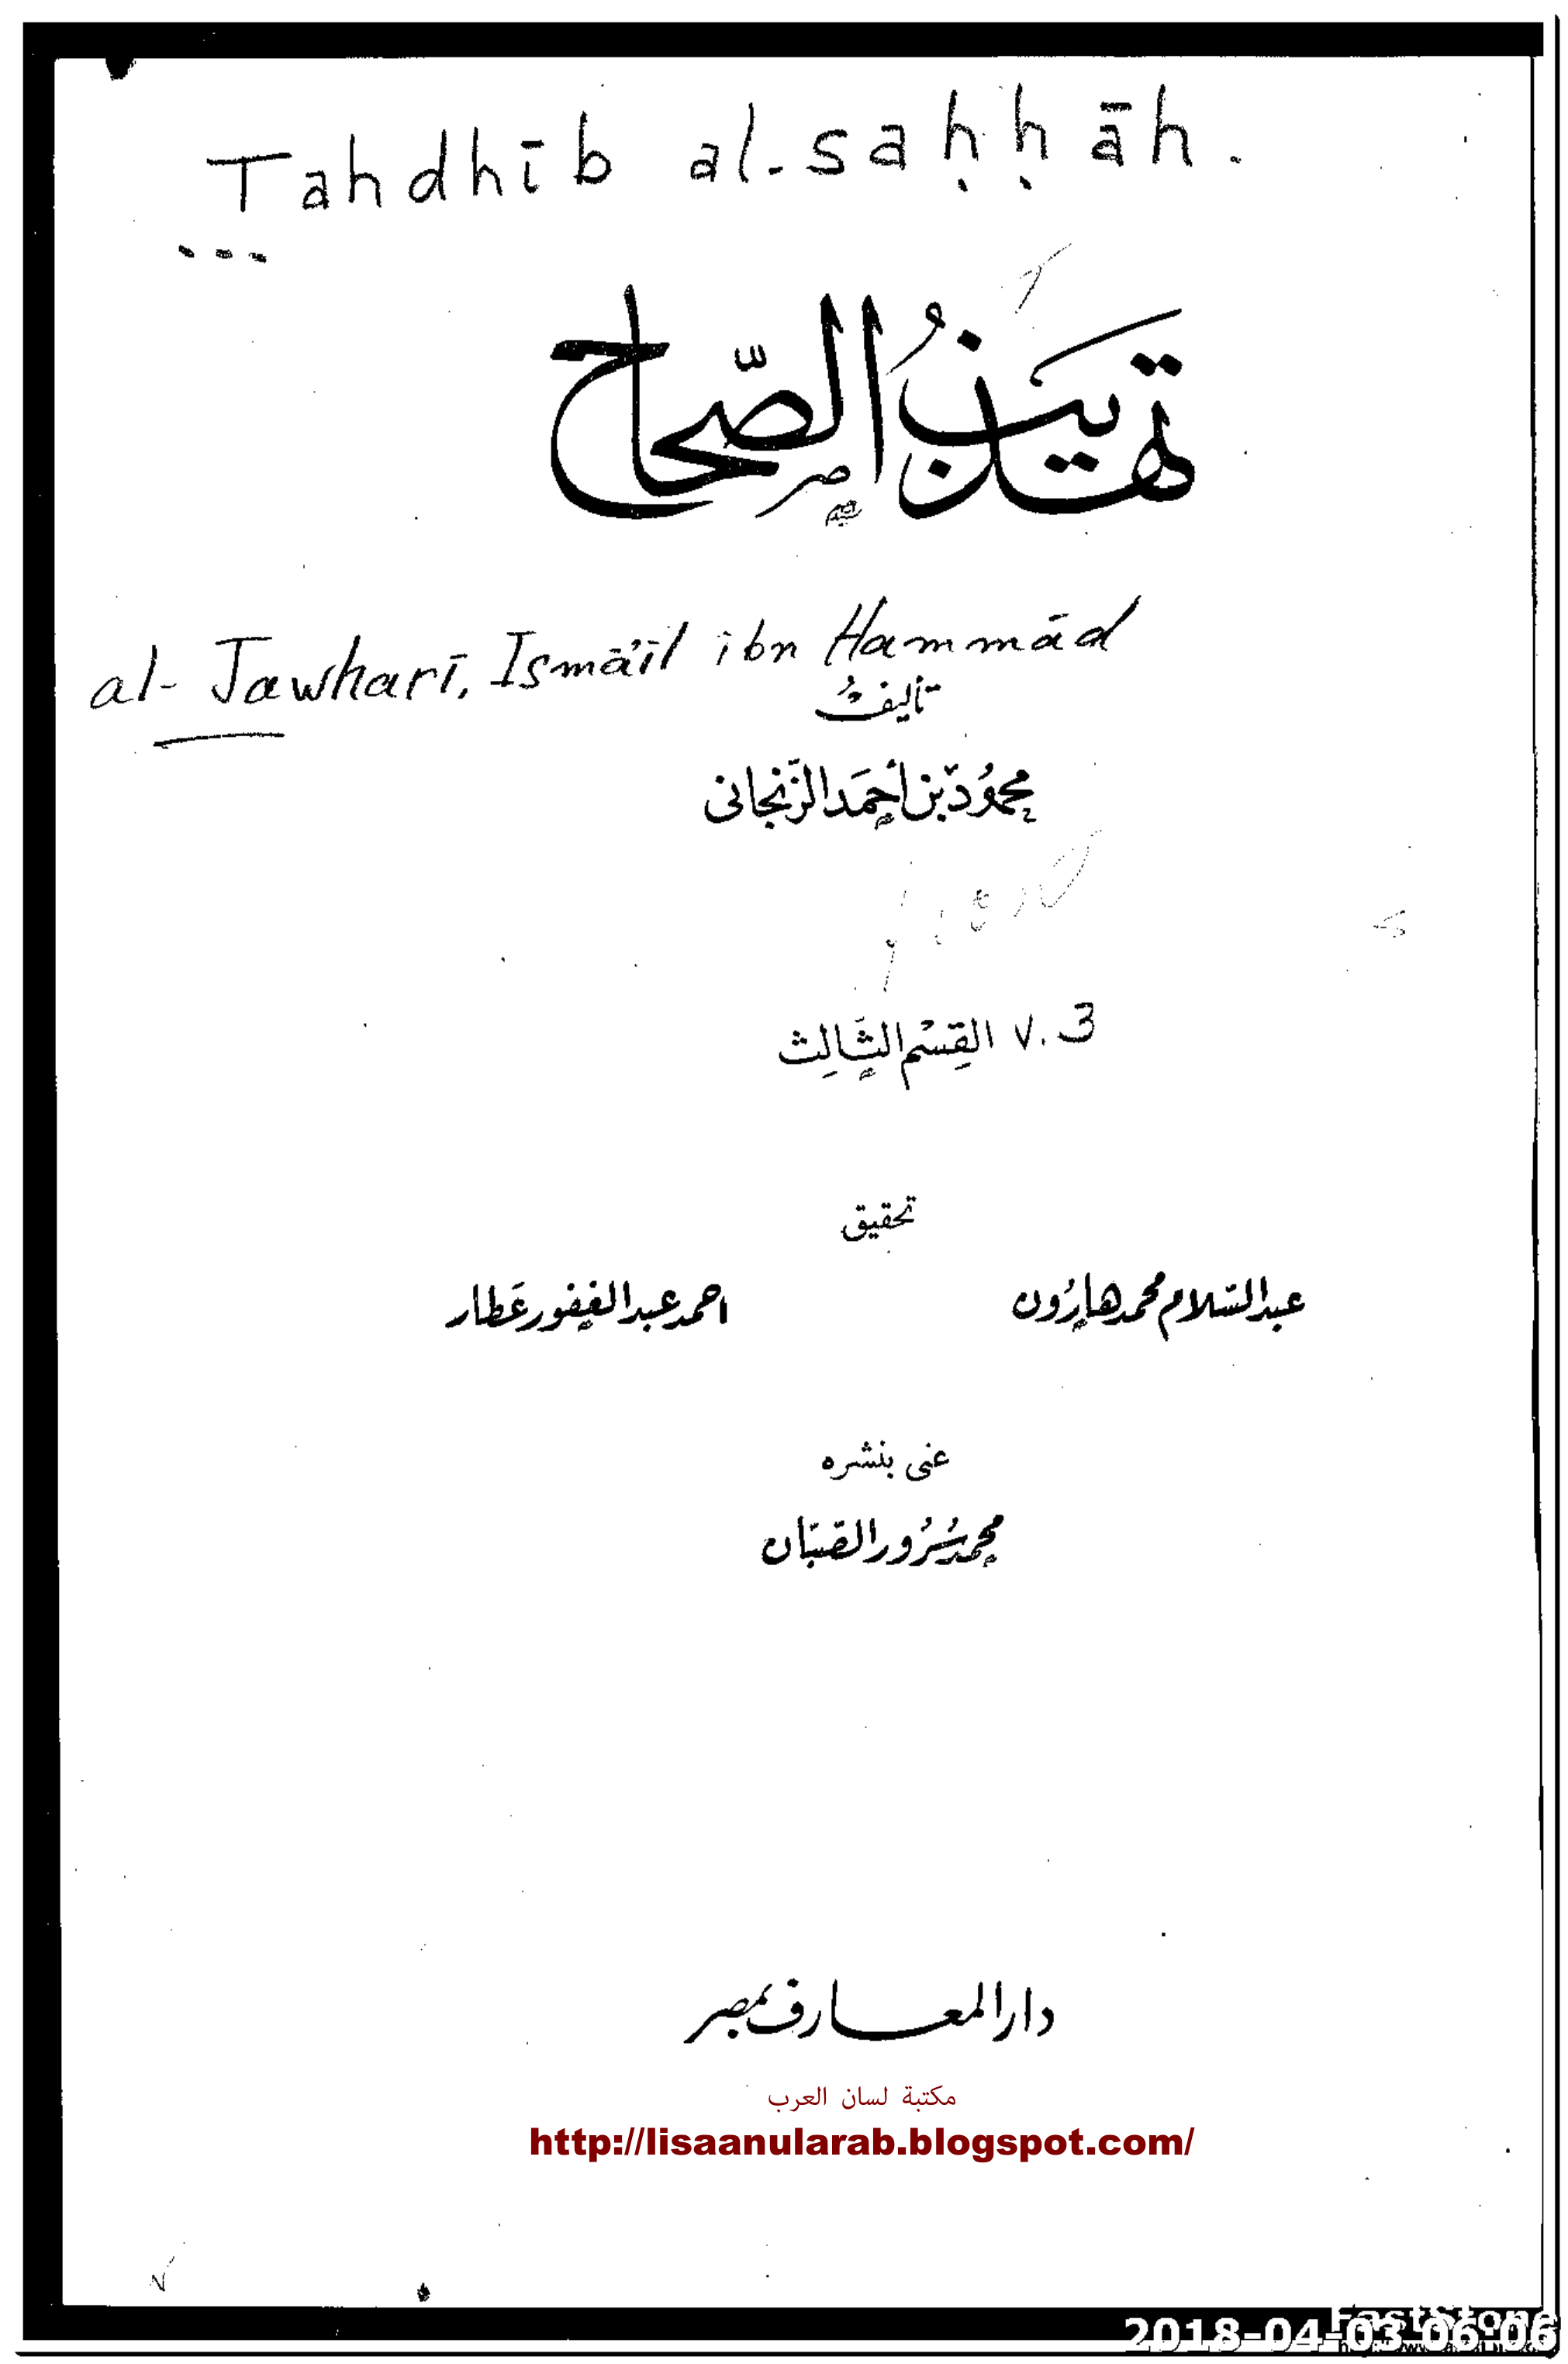 Tahdhīb al-saḥḥāh.
تهذيبُ الصّحاح
al-Jawharī, Ismāʿīl ibn Hammād
تأليفُ
محمُود بن أحمَد الزّنجانى
القِسْم الثَّالِث v. 3
تحقيق
عبد السّلام محمد هارُون احمد عبد الغفور عَطار
عنى بنشره
محمد سُرُور الصّبّان
دار المعارف بمصر
مكتبة لسان العرب
http://lisaanularab.blogspot.com/
FastStone
2018-04-03 06:06